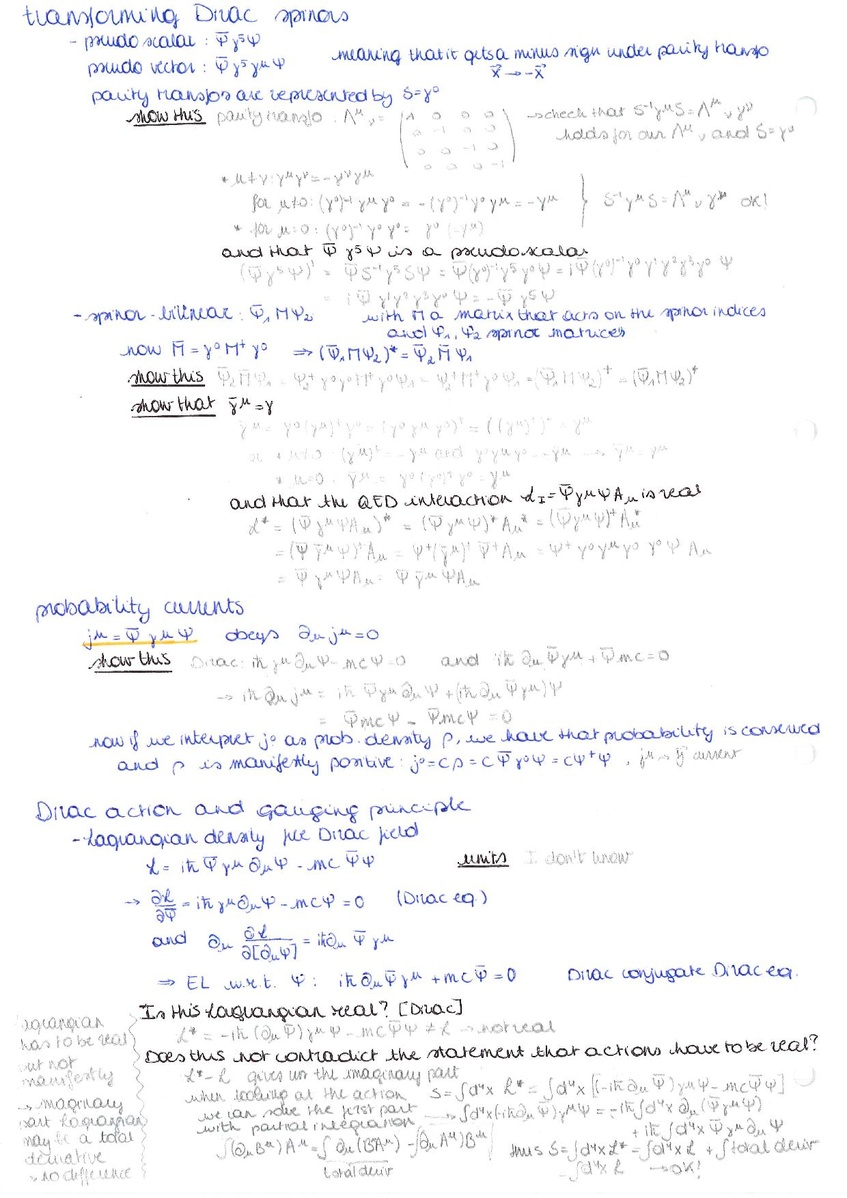 transforming Dirac spinors
- pseudo scalar : Ψ̄γ⁵Ψ
pseudo vector : Ψ̄γ⁵γ^μΨ
meaning that it gets a minus sign under parity transfo
x⃗ → -x⃗
parity transfos are represented by S=γ⁰
show this parity transfo : Λ^μ_ν = (1 0 0 0
0 -1 0 0
0 0 -1 0
0 0 0 -1)
→ check that S⁻¹γ^μS = Λ^μ_ν γ^ν
holds for our Λ^μ_ν and S=γ⁰
* μ≠ν: γ^μγ^ν = -γ^νγ^μ
for μ≠0: (γ⁰)⁻¹γ^μγ⁰ = -(γ⁰)⁻¹γ⁰γ^μ = -γ^μ } S⁻¹γ^μS = Λ^μ_ν γ^μ OK!
* for μ=0: (γ⁰)⁻¹γ⁰γ⁰ = γ⁰ (-γ^μ)
and that Ψ̄γ⁵Ψ is a pseudoscalar
(Ψ̄γ⁵Ψ)' = Ψ̄S⁻¹γ⁵SΨ = Ψ̄(γ⁰)⁻¹γ⁵γ⁰Ψ = iΨ̄(γ⁰)⁻¹γ⁰γ¹γ²γ³γ⁰Ψ
= iΨ̄γ¹γ²γ³γ⁰Ψ = -Ψ̄γ⁵Ψ
- spinor-bilinear : Ψ̄₁MΨ₂ with M a matrix that acts on the spinor indices
and Ψ₁, Ψ₂ spinor matrices
now M̄ = γ⁰M⁺γ⁰ ⇒ (Ψ̄₁MΨ₂)* = Ψ̄₂M̄Ψ₁
show this Ψ̄₂M̄Ψ₁ = Ψ₂⁺γ⁰γ⁰M⁺γ⁰Ψ₁ = Ψ₂⁺M⁺γ⁰Ψ₁ = (Ψ̄₁MΨ₂)⁺ = (Ψ̄₁MΨ₂)*
show that γ̄^μ = γ
γ̄^μ = γ⁰(γ^μ)⁺γ⁰ = (γ⁰γ^μγ⁰)⁺ = ((γ^μ)⁺)⁺ = γ^μ
* μ=0: γ̄^μ = γ⁰(γ⁰)⁺γ⁰ = γ^μ
and that the QED interaction ℒ_I = Ψ̄γ^μΨA_μ is real
ℒ* = (Ψ̄γ^μΨA_μ)* = (Ψ̄γ^μΨ)*A_μ* = (Ψ̄γ^μΨ)⁺A_μ*
= (Ψ̄γ̄^μΨ)⁺A_μ = Ψ⁺(γ̄^μ)⁺Ψ̄⁺A_μ = Ψ⁺γ⁰γ^μγ⁰γ⁰ΨA_μ
= Ψ̄γ^μΨA_μ = Ψ̄γ̄^μΨA_μ
probability currents
j^μ = Ψ̄γ^μΨ obeys ∂_μj^μ = 0
show this Dirac: iħγ^μ∂_μΨ - mcΨ = 0 and iħ∂_μΨ̄γ^μ + Ψ̄mc = 0
→ iħ∂_μj^μ = iħΨ̄γ^μ∂_μΨ + (iħ∂_μΨ̄γ^μ)Ψ
= Ψ̄mcΨ - Ψ̄mcΨ = 0
now if we interpret j⁰ as prob. density ρ, we have that probability is conserved
and ρ is manifestly positive : j⁰ = cρ = cΨ̄γ⁰Ψ = cΨ⁺Ψ , j^μ → j⃗ current
Dirac action and gauging principle
- Lagrangian density for Dirac field
ℒ = iħΨ̄γ^μ∂_μΨ - mcΨ̄Ψ units I don't know
→ ∂ℒ/∂Ψ̄ = iħγ^μ∂_μΨ - mcΨ = 0 (Dirac eq.)
and ∂_μ ∂ℒ/∂[∂_μΨ] = iħ∂_μΨ̄γ^μ
⇒ EL w.r.t. Ψ : iħ∂_μΨ̄γ^μ + mcΨ̄ = 0 Dirac conjugate Dirac eq.
Is this Lagrangian real? [Dirac]
ℒ* = -iħ(∂_μΨ̄)γ^μΨ - mcΨ̄Ψ ≠ ℒ → not real
Does this not contradict the statement that actions have to be real?
ℒ* - ℒ gives us the imaginary part
when looking at the action
we can solve the first part
with partial integration
∫(∂_μB^μ)A^μ = ∫∂_μ(BA^μ) - ∫∂_μA^μ)B^μ
total deriv
S = ∫d⁴x ℒ* = ∫d⁴x [(-iħ∂_μΨ̄)γ^μΨ - mcΨ̄Ψ]
→ ∫d⁴x(iħ∂_μΨ̄)γ^μΨ = -iħ∫d⁴x ∂_μ(Ψ̄γ^μΨ)
+ iħ∫d⁴x Ψ̄γ^μ∂_μΨ
thus S = ∫d⁴x ℒ* = ∫d⁴x ℒ + ∫total deriv
= ∫d⁴x ℒ → OK!
agrangian
has to be real
ut not
manifestly
→ imaginary
part Lagrangian
may be a total
derivative
→ no difference